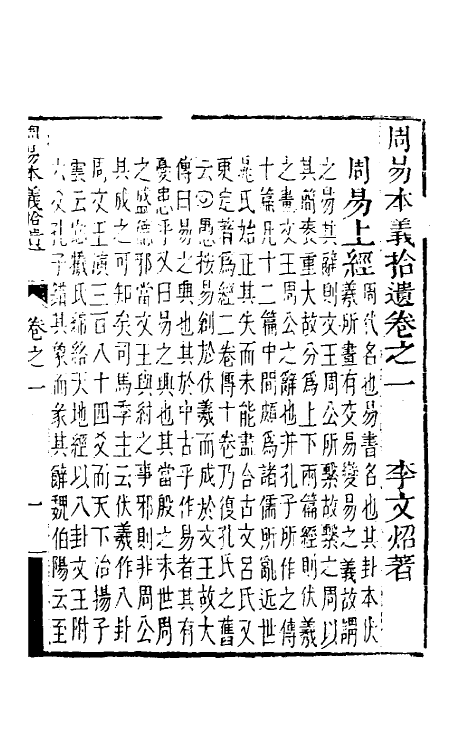 周易本義拾遺卷之一　李文炤著
周易上經
周代名也易書名也其卦本伏
羲所畫有交易變易之義故謂
之易其辭則文王周公所繫故繫之周以
其簡袠重大故分為上下兩篇經則伏羲
之畫文王周公之辭也并孔子所作之傳
十篇凡十二篇中間頗為諸儒所亂近世
晁氏始正其失而未能盡合古文呂氏又
更定著為經二卷傳十卷乃復孔氏之舊
云○愚按易創於伏羲而成於文王故大
傳曰易之興也其於中古乎作易者其有
憂患乎又曰易之興也其當殷之末世周
之盛德邪當文王與紂之事邪則非周公
其成之可知矣司馬季主云伏羲作八卦
周文王演三百八十四爻而天下治揚子
雲云宓犧氏緜絡天地經以八卦文王附
六爻孔子錯其象而彖其辭魏伯陽云至
周易本義拾遺　卷之一　一